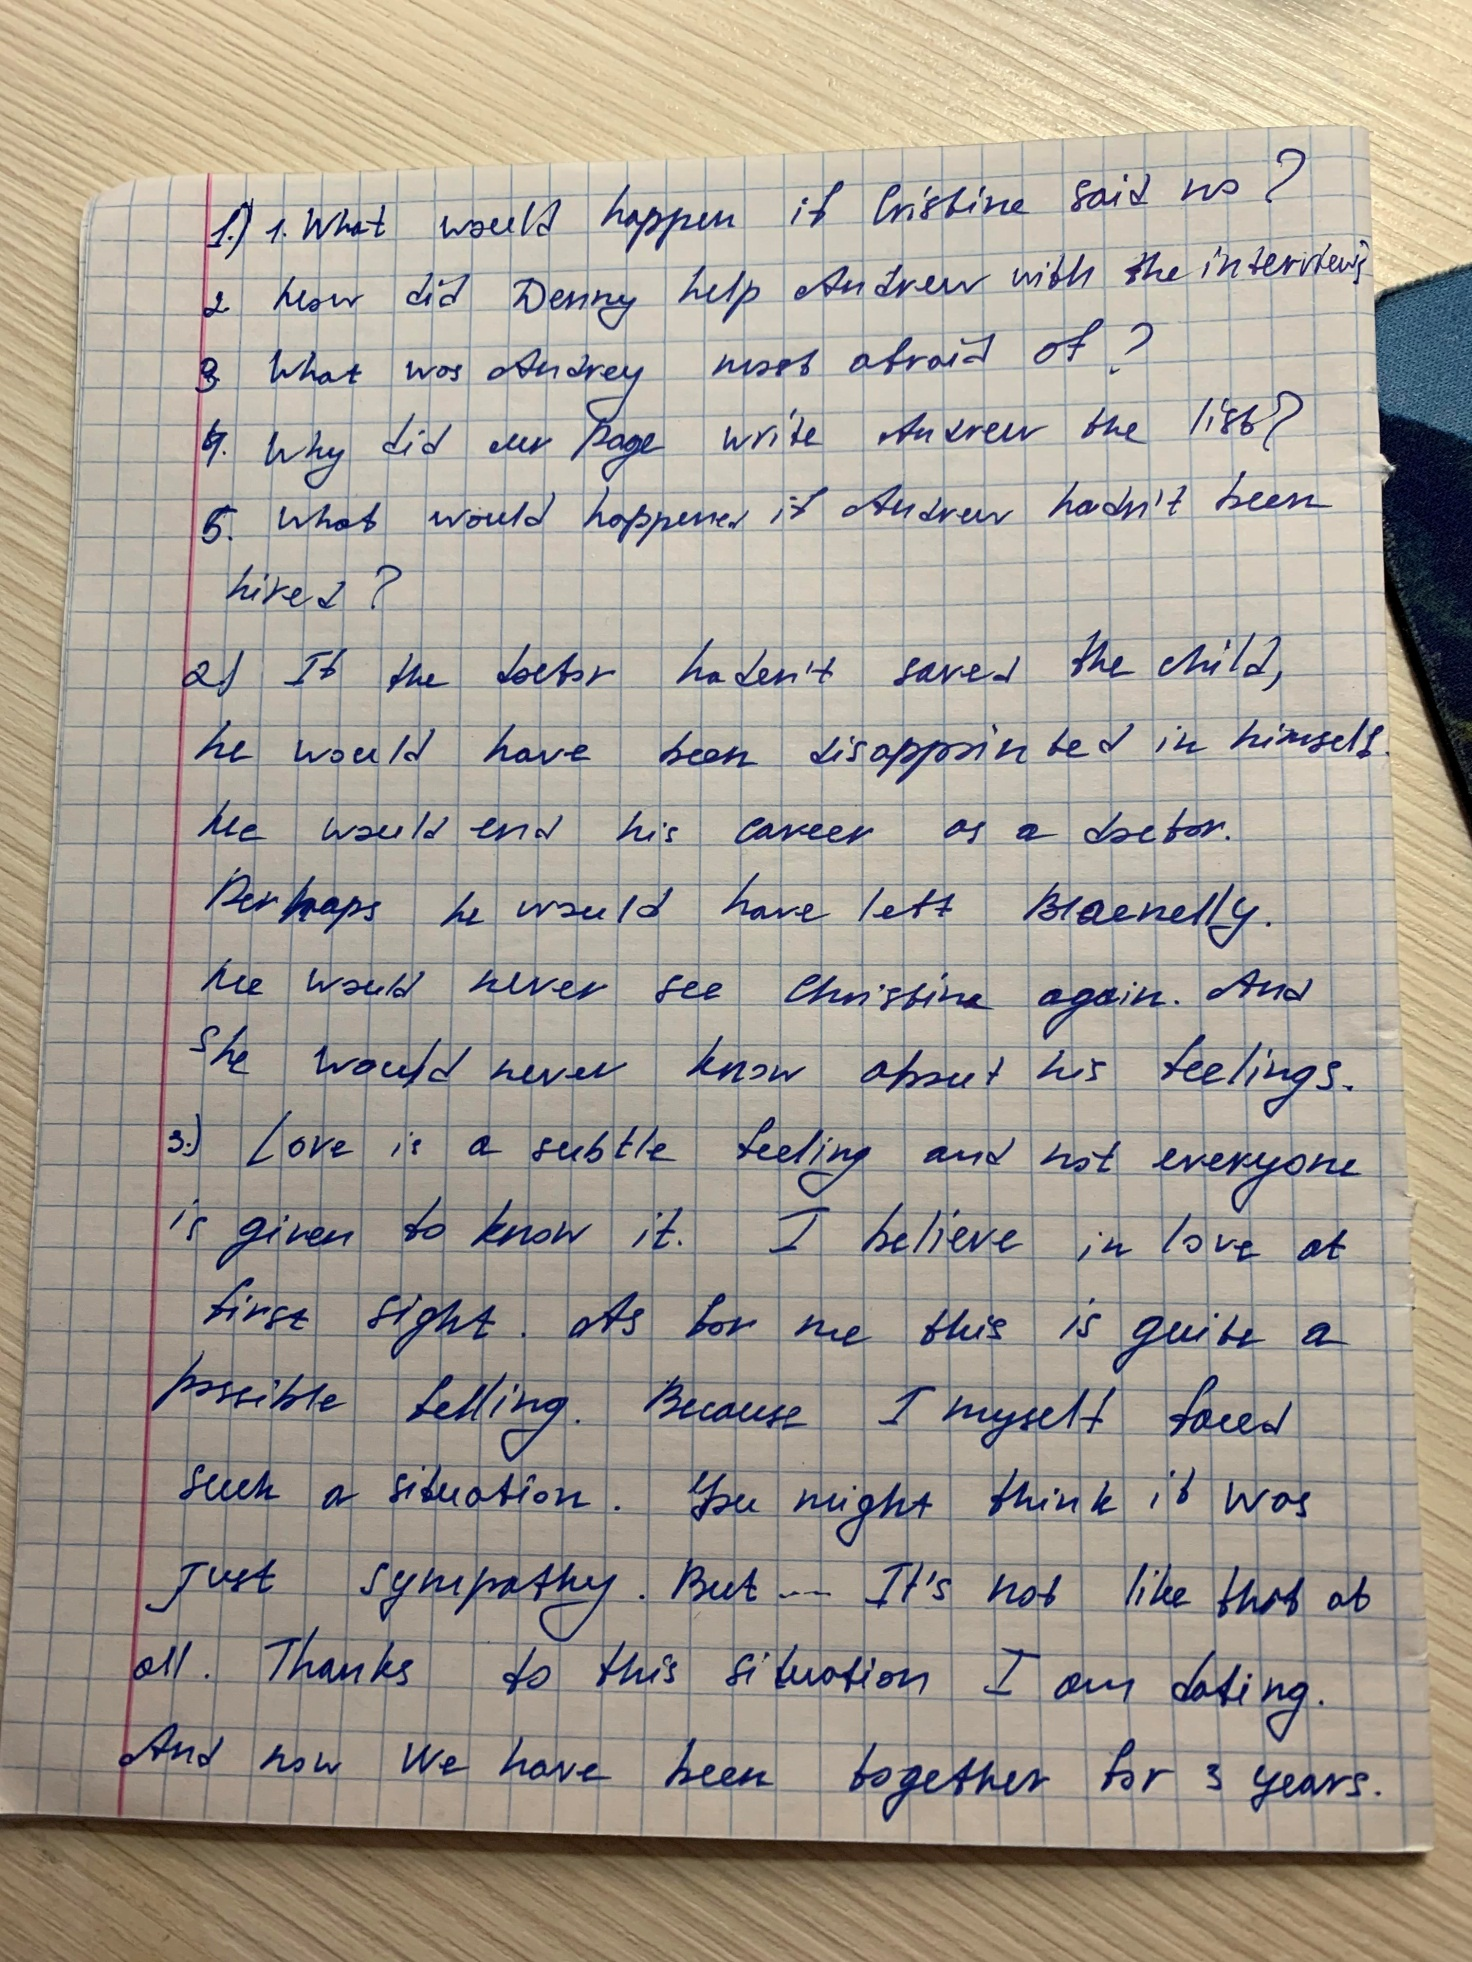 1.) 1. What would happen if Cristine said no?
2 How did Denny help Andrew with the interview?
3. What was Andrey most afraid of?
4. Why did mr Page write Andrew the list?
5. What would happened if Andrew hadn't been
hired?
2) If the doctor haden't saved the child,
he would have been disappointed in himself.
He would end his career as a doctor.
Perhaps he would have left Blaenelly.
He would never see Christine again. And
she would never know about his feelings.
3.) Love is a subtle feeling and not everyone
is given to know it. I believe in love at
first sight. As for me this is quite a
possible felling. Because I myself faced
such a situation. You might think it was
just sympathy. But ... It's not like that at
all. Thanks to this situation I am dating.
And now We have been together for 3 years.